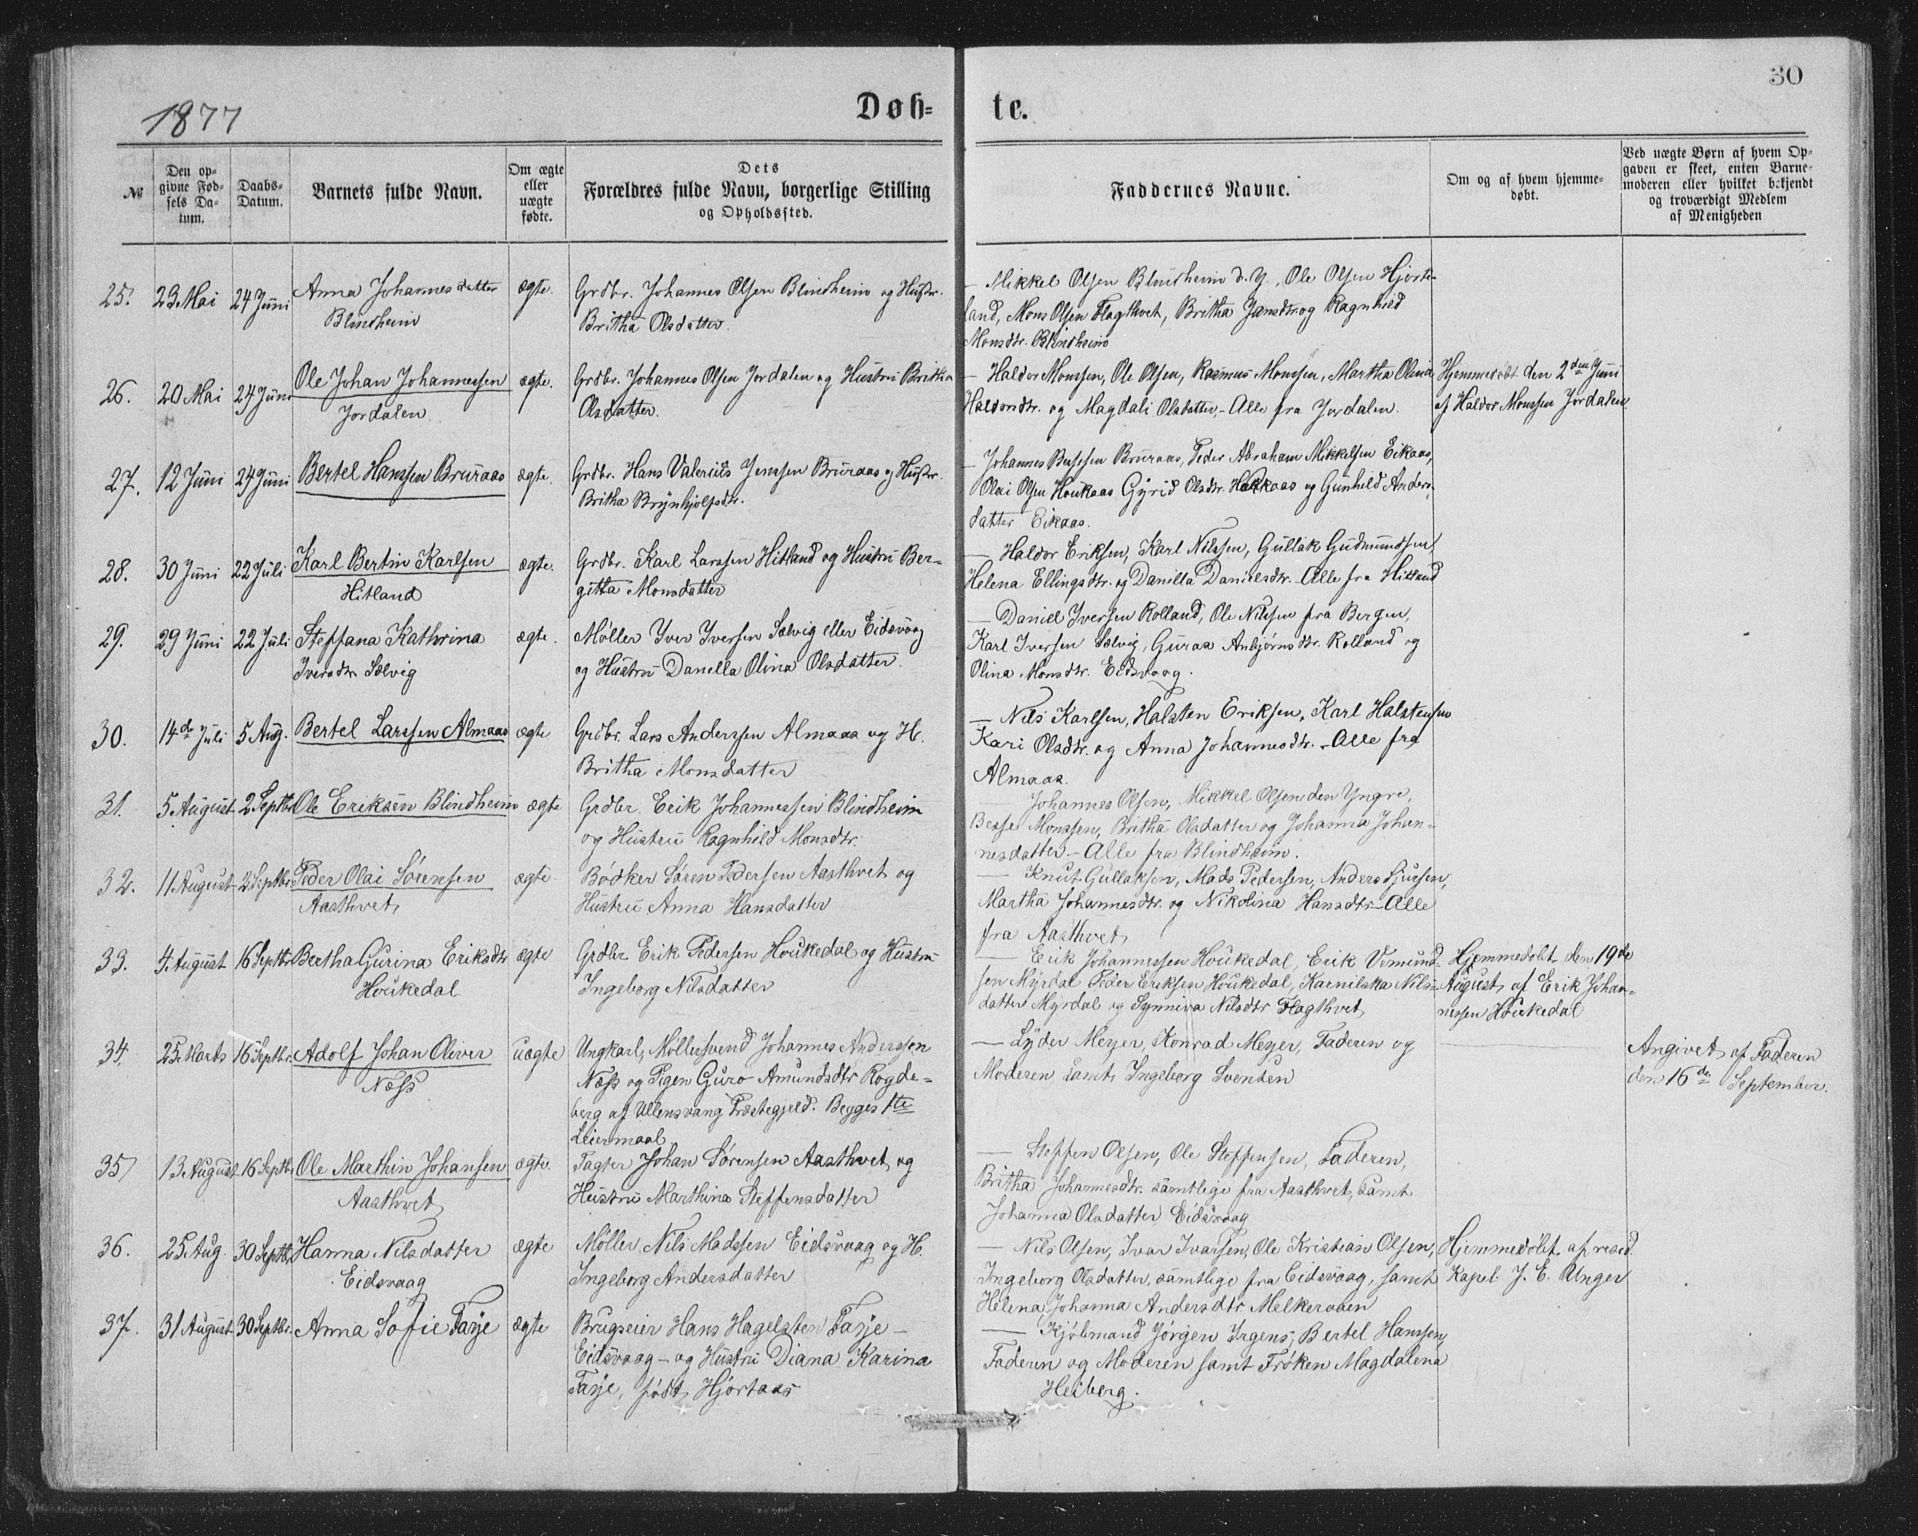 30
1877
Døb-
te.
№
Den op-
givne Fød-
sels Da-
tum.
Daabs-
Datum.
Barnets fulde Navn.
Om ægte
eller
uægte
fødte.
Dets
Forældres fulde Navn, borgerlige Stilling
og Opholdssted.
Faddernes Navne.
Om og af hvem hjemme-
døbt.
Ved uægte Børn af hvem Op-
gaven er skeet, enten Barne-
moderen eller hvilket bekjendt
og troværdigt Medlem
af Menigheden
25. 23. Mai 24 Juni Anna Johannesdatter
Blindheim
ægte.
Grdbr. Johannes Olsen Blindheim og Hustr.
Britha Olsdatter.
— Mikkel Olsen Blindheim d. Y., Ole Olsen Hjorte-
land, Mons Olsen Flagthvet, Britha Jansdtr og Ragnhild
Monsdtr. Blindheim
26. 20 Mai 24 Juni Ole Johan Johannessen
Jordalen
ægte.
Grdbr. Johannes Olsen Jordalen og Hustru Britha
Olsdatter.
— Haldor Monssen, Ole Olsen, Rasmus Monssen, Martha Olina
Haldorsdtr. og Magdali Olsdatter, - Alle fra Jordalen.
Hjemmedøbt den 2den Juni
af Haldor Monssen Jordalen.
27. 12 Juni 24 Juni Bertel Hanssen Bruraas
ægte.
Grdbr. Hans Valerius Jenssen Bruraas og Hustr.
Britha Brynhjolfsdtr.
— Johannes Bessesen Bruraas, Peder Abraham Mikkelsen Eikaas,
Olai Olsen Houkaas Gyrid Olsdtr. Houkaas og Gunhild Anders-
datter Eikaas.
28. 30 Juni 22 Juli Karl Bertin Karlsen
Hitland
ægte.
Grdbr. Karl Larssen Hitland og Hustru Ber-
gitta Monsdatter
— Haldor Eriksen, Karl Nilssen, Gullak Gudmundsen,
Helena Ellingsdtr. og Danilla Danielsdtr. Alle fra Hitland
29. 29 Juni 22 Juli Steffana Kathrina
Iversdtr Sælvig
ægte.
Møller Iver Iversen Sælvig eller Eidsvaag
og Hustru Danella Olina Olsdatter.
— Daniel Iversen Rolland, Ole Nilssen fra Bergen,
Karl Iversen Sælvig, Guraa Anbjørnsdtr. Rolland og
Olina Monsdtr. Eidsvaag.
30. 14de Juli 5 Aug. Bertel Larssen Almaas
ægte
Grdbr. Lars Anderssen Almaas og H.
Britha Monsdatter
— Nils Karlsen, Halsten Eriksen, Karl Halstensen
Kari Olsdtr. og Anna Johannesdtr. - Alle fra
Almaas.
31. 5 August 2 Septbr Ole Eriksen Blindheim
ægte
Grdbr. Erik Johannessen Blindheim
og Hustru Ragnhild Monsdtr.
— Johannes Olsen, Mikkel Olsen den Yngre,
Besse Monssen, Britha Olsdatter og Johanna Johan-
nesdatter - Alle fra Blindheim.
32. 11 August 2 Septbr. Peder Olai Sørensen
Aasthvet
ægte
Bødker Søren Pedersen Aasthvet og
Hustru Anna Hansdatter
— Knut Gullaksen, Mads Pedersen, Anders Sjursen,
Martha Johannesdtr. og Nikolina Hansdtr - Alle
fra Aasthvet
33. 4. August 16 Septbr Bertha Gurina Eriksdtr
Houkedal
ægte
Grdbr Erik Pedersen Houkedal og Hustru
Ingeborg Nilsdatter
— Erik Johannessen Houkedal, Erik Vemund-
sen Myrdal Peder Eriksen Houkedal, Karnilska Nils-
datter Myrdal og Synniva Nilsdtr Flagthvet
Hjemmedøbt den 19de
August af Erik Johan-
nessen Houkedal
34. 25. Marts 16 Septbr. Adolf Johan Oliver
Næss
uægte
Ungkarl, Møllersvend Johannes Anderssen
Næss og Pigen Guro Amundsdtr Rogde-
berg af Ullensvang Præstegjeld. Begges 1te
Leiermaal
— Lyder Meyer, Konrad Meyer, Faderen og
Moderen samt Ingeborg Svensen
Angivet af Faderen
den 16de September.
35 13. August 16 Septbr Ole Marthin Johansen
Aasthvet
ægte.
Fagter Johan Sørensen Aasthvet og
Hustru Marthina Steffensdatter
— Steffen Olsen, Ole Steffensen, Faderen,
Britha Johannesdtr. samtlige fra Aasthvet, samt
Johanna Olsdatter Eidsvaag
36. 25. Aug. 30 Septbr Hanna Nilsdatter
Eidsvaag
ægte
Møller Nils Madssen Eidsvaag og H.
Ingeborg Andersdatter
— Nils Olsen, Ivar Ivarsen, Ole Kristian Olsen,
Ingeborg Olsdatter, samtlige fra Eidsvaag, samt
Helena Johanna Andersdtr Melkeraaen
Hjemmedøbt af resid.
Kapel. J. E. Unger
37. 31 August 30 Septbr. Anna Sofie Faye
ægte
Brugseier Hans Hagelsten Faye -
Eidsvaag - og Hustru Diana Karina
Faye, født Hjortaas
— Kjøbmand Jørgen Irgens, Bertel Hanssen,
Faderen og Moderen samt Frøken Magdalena
Heiberg.